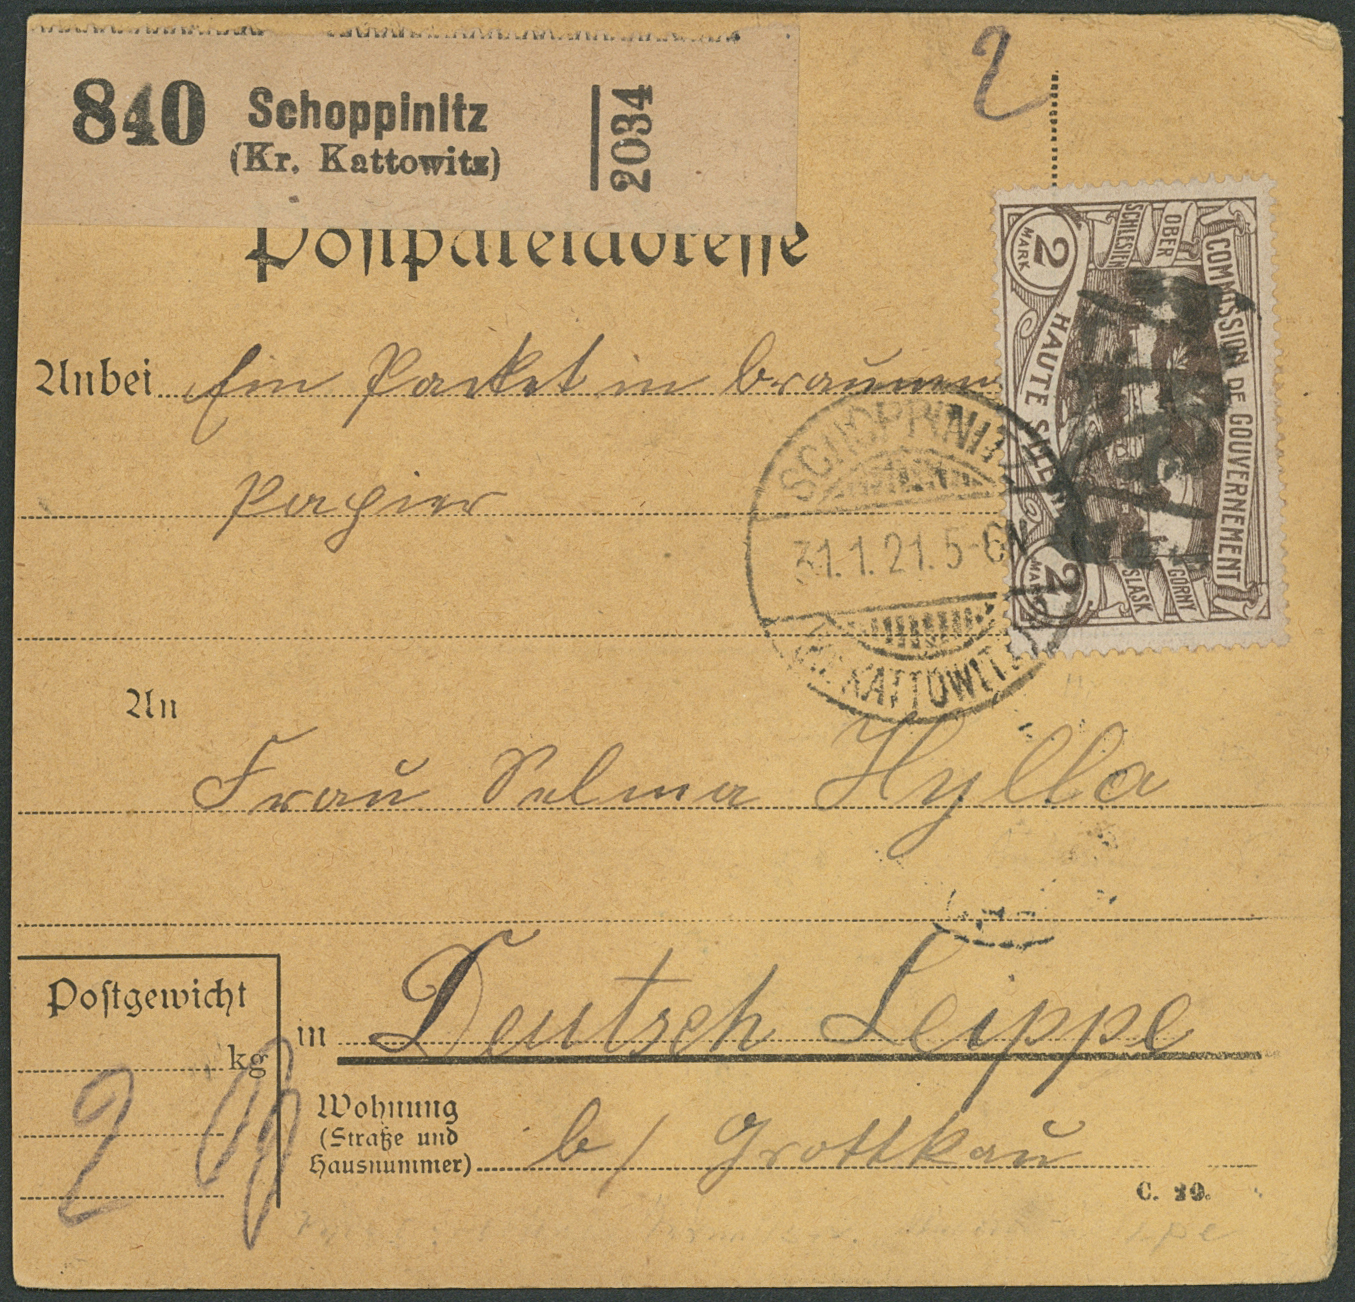 840 Schoppinitz
(Kr. Kattowitz)
2034
2
Postpaketadresse
Anbei Ein Packet in braunem
Papier
COMMISSION DE GOUVERNEMENT
OBER
SCHLESIEN
HAUTE SILÉSIE
GORNY
SLASK
2
MARK
2
MARK
SCHOPPINITZ
31.1.21. 5-6N
(KR. KATTOWITZ)
An
Frau Selma Hylla
Postgewicht
kg
2
in Deutsch Leippe
Wohnung
(Straße und
Hausnummer) b/ Grottkau
C. 29.